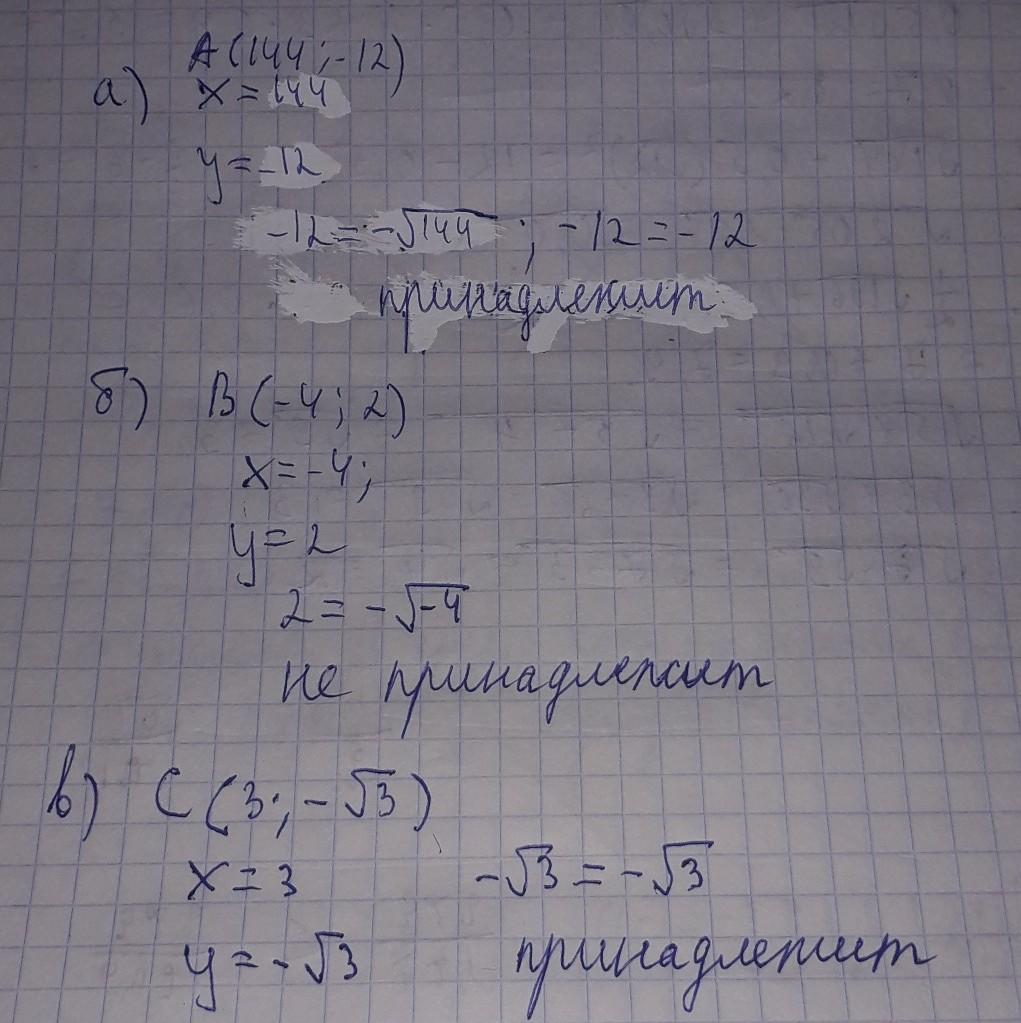 A(144;-12)
а) x=144
y=-12
-12=-√144 ; -12=-12
принадлежит
б) B(-4; 2)
x=-4;
y=2
2=-√-4
не принадлежит
в) C(3;-√3)
x=3 -√3=-√3
y=-√3 принадлежит